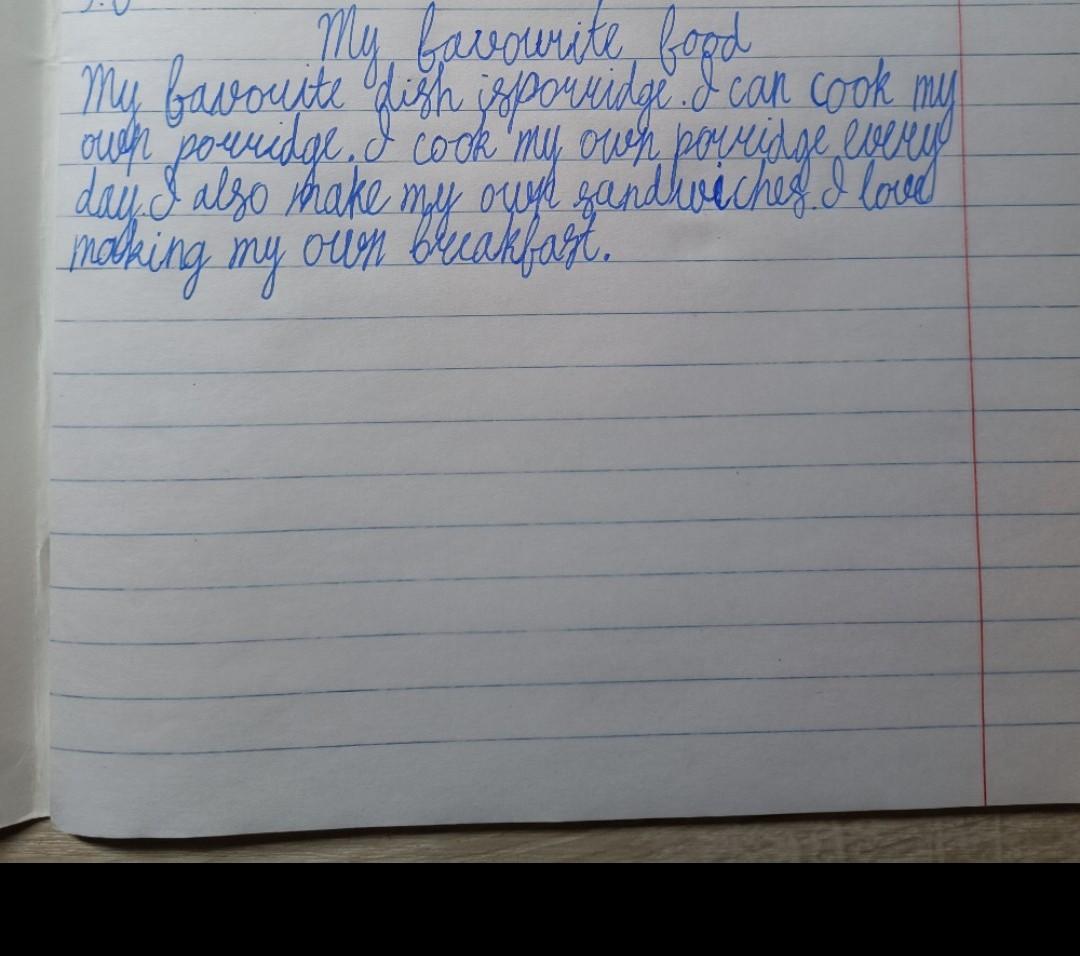 My favourite food
My favouite dish is porridge. I can cook my
own porridge. I cook my own porridge every
day. I also make my own sandwiches. I love
making my own breakfast.